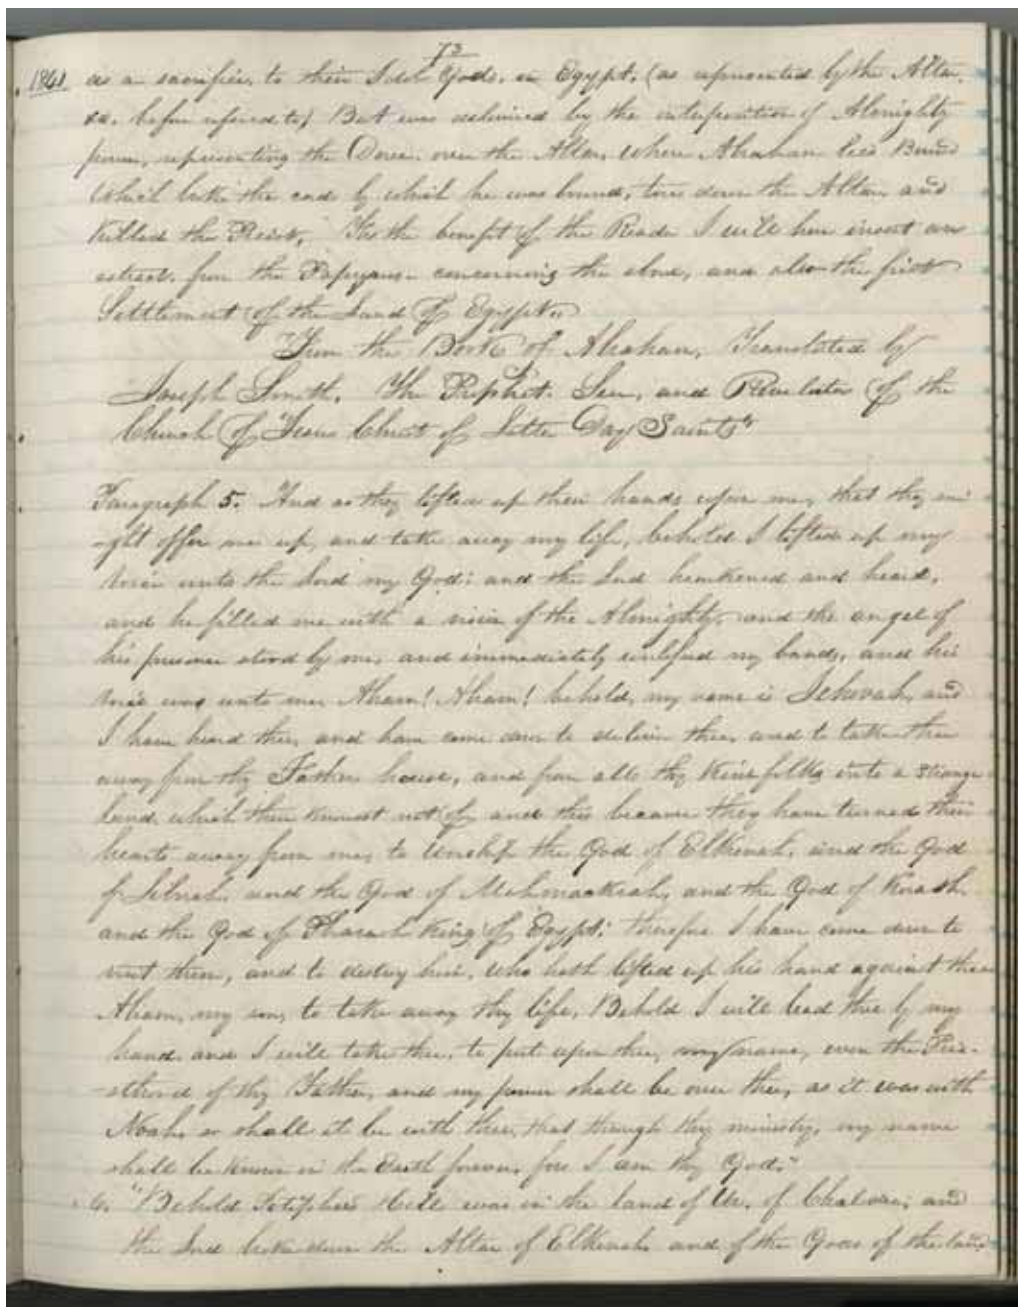 73
1841 as a sacrifice, to their Idol Gods, in Egypt, (as represented by the Altar,
&c. before refered to) But was delivered by the interposition of Almighty
power, representing the Dove over the Altar, where Abraham lies Bound
Which broke the cord by which he was bound, tore down the Altar, and
Killed the Priest, For the benefit of the Reader I will here insert an
extract from the Papyrus- concerning the above, and also the first
Settlement of the Land of Egypt.
"From the Book of Abraham, Translated by
Joseph Smith, The Prophet, Seer, and Revelator of the
Church of Jesus Christ of Latter Day Saints"
Paragraph 5. And as they lifted up their hands upon me, that they mi-
-ght offer me up, and take away my life, behold I lifted up my
voice unto the Lord my God; and the Lord hearkened and heard,
and he filled me with a vision of the Almighty, and the angel of
his presence stood by me, and immediately unloosed my bands, and his
voice was unto me, Abram! Abram! behold, my name is Jehovah, and
I have heard thee, and have come down to deliver thee, and to take thee
away from thy Fathers house, and from all thy kins folks into a strange
land, which thou knowest not of, and this because they have turned their
hearts away from me, to Worship the God of Elkenah, and the God
of Libnah, and the God of Mahmackrah, and the God of Korash,
and the God of Pharaoh King of Egypt; therefore I have come down to
visit them, and to destroy him, who hath lifted up his hand against thee
Abram, my son, to take away thy life, Behold I will lead thee by my
hand, and I will take thee, to put upon thee, my name, even the Prie-
-sthood of thy Father, and my power shall be over thee, as it was with
Noah, so shall it be with thee, that through thy ministry, my name
shall be known in the Earth forever, for I am thy God."
6. "Behold Potiphers Hill was in the land of Ur, of Chaldea; and
the Lord broke down the Altar of Elkenah and of the Gods of the land,